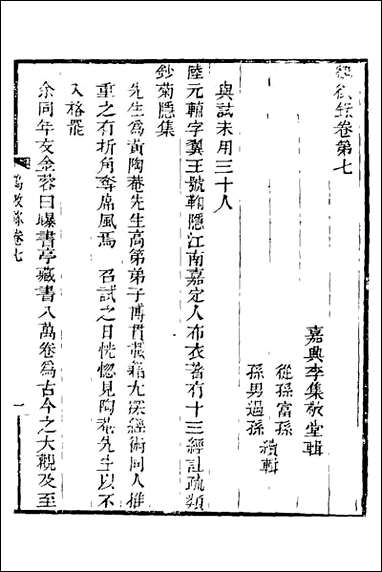 鶴徵錄卷第七
嘉興李集敬堂輯
從孫富孫
孫男遇孫
續輯
與試未用三十人
陸元輔字翼王號鞠隱江南嘉定人布衣著有十三經註疏類
鈔菊隱集
先生爲黃陶菴先生高第弟子博貫載籍尤深經術同人推
重之有折角奪席風焉 召試之日恍惚見陶菴先生以不
入格罷
余同年友金蓉曰曝書亭藏書八萬卷爲古今之大觀及至
鶴徵錄卷七
一